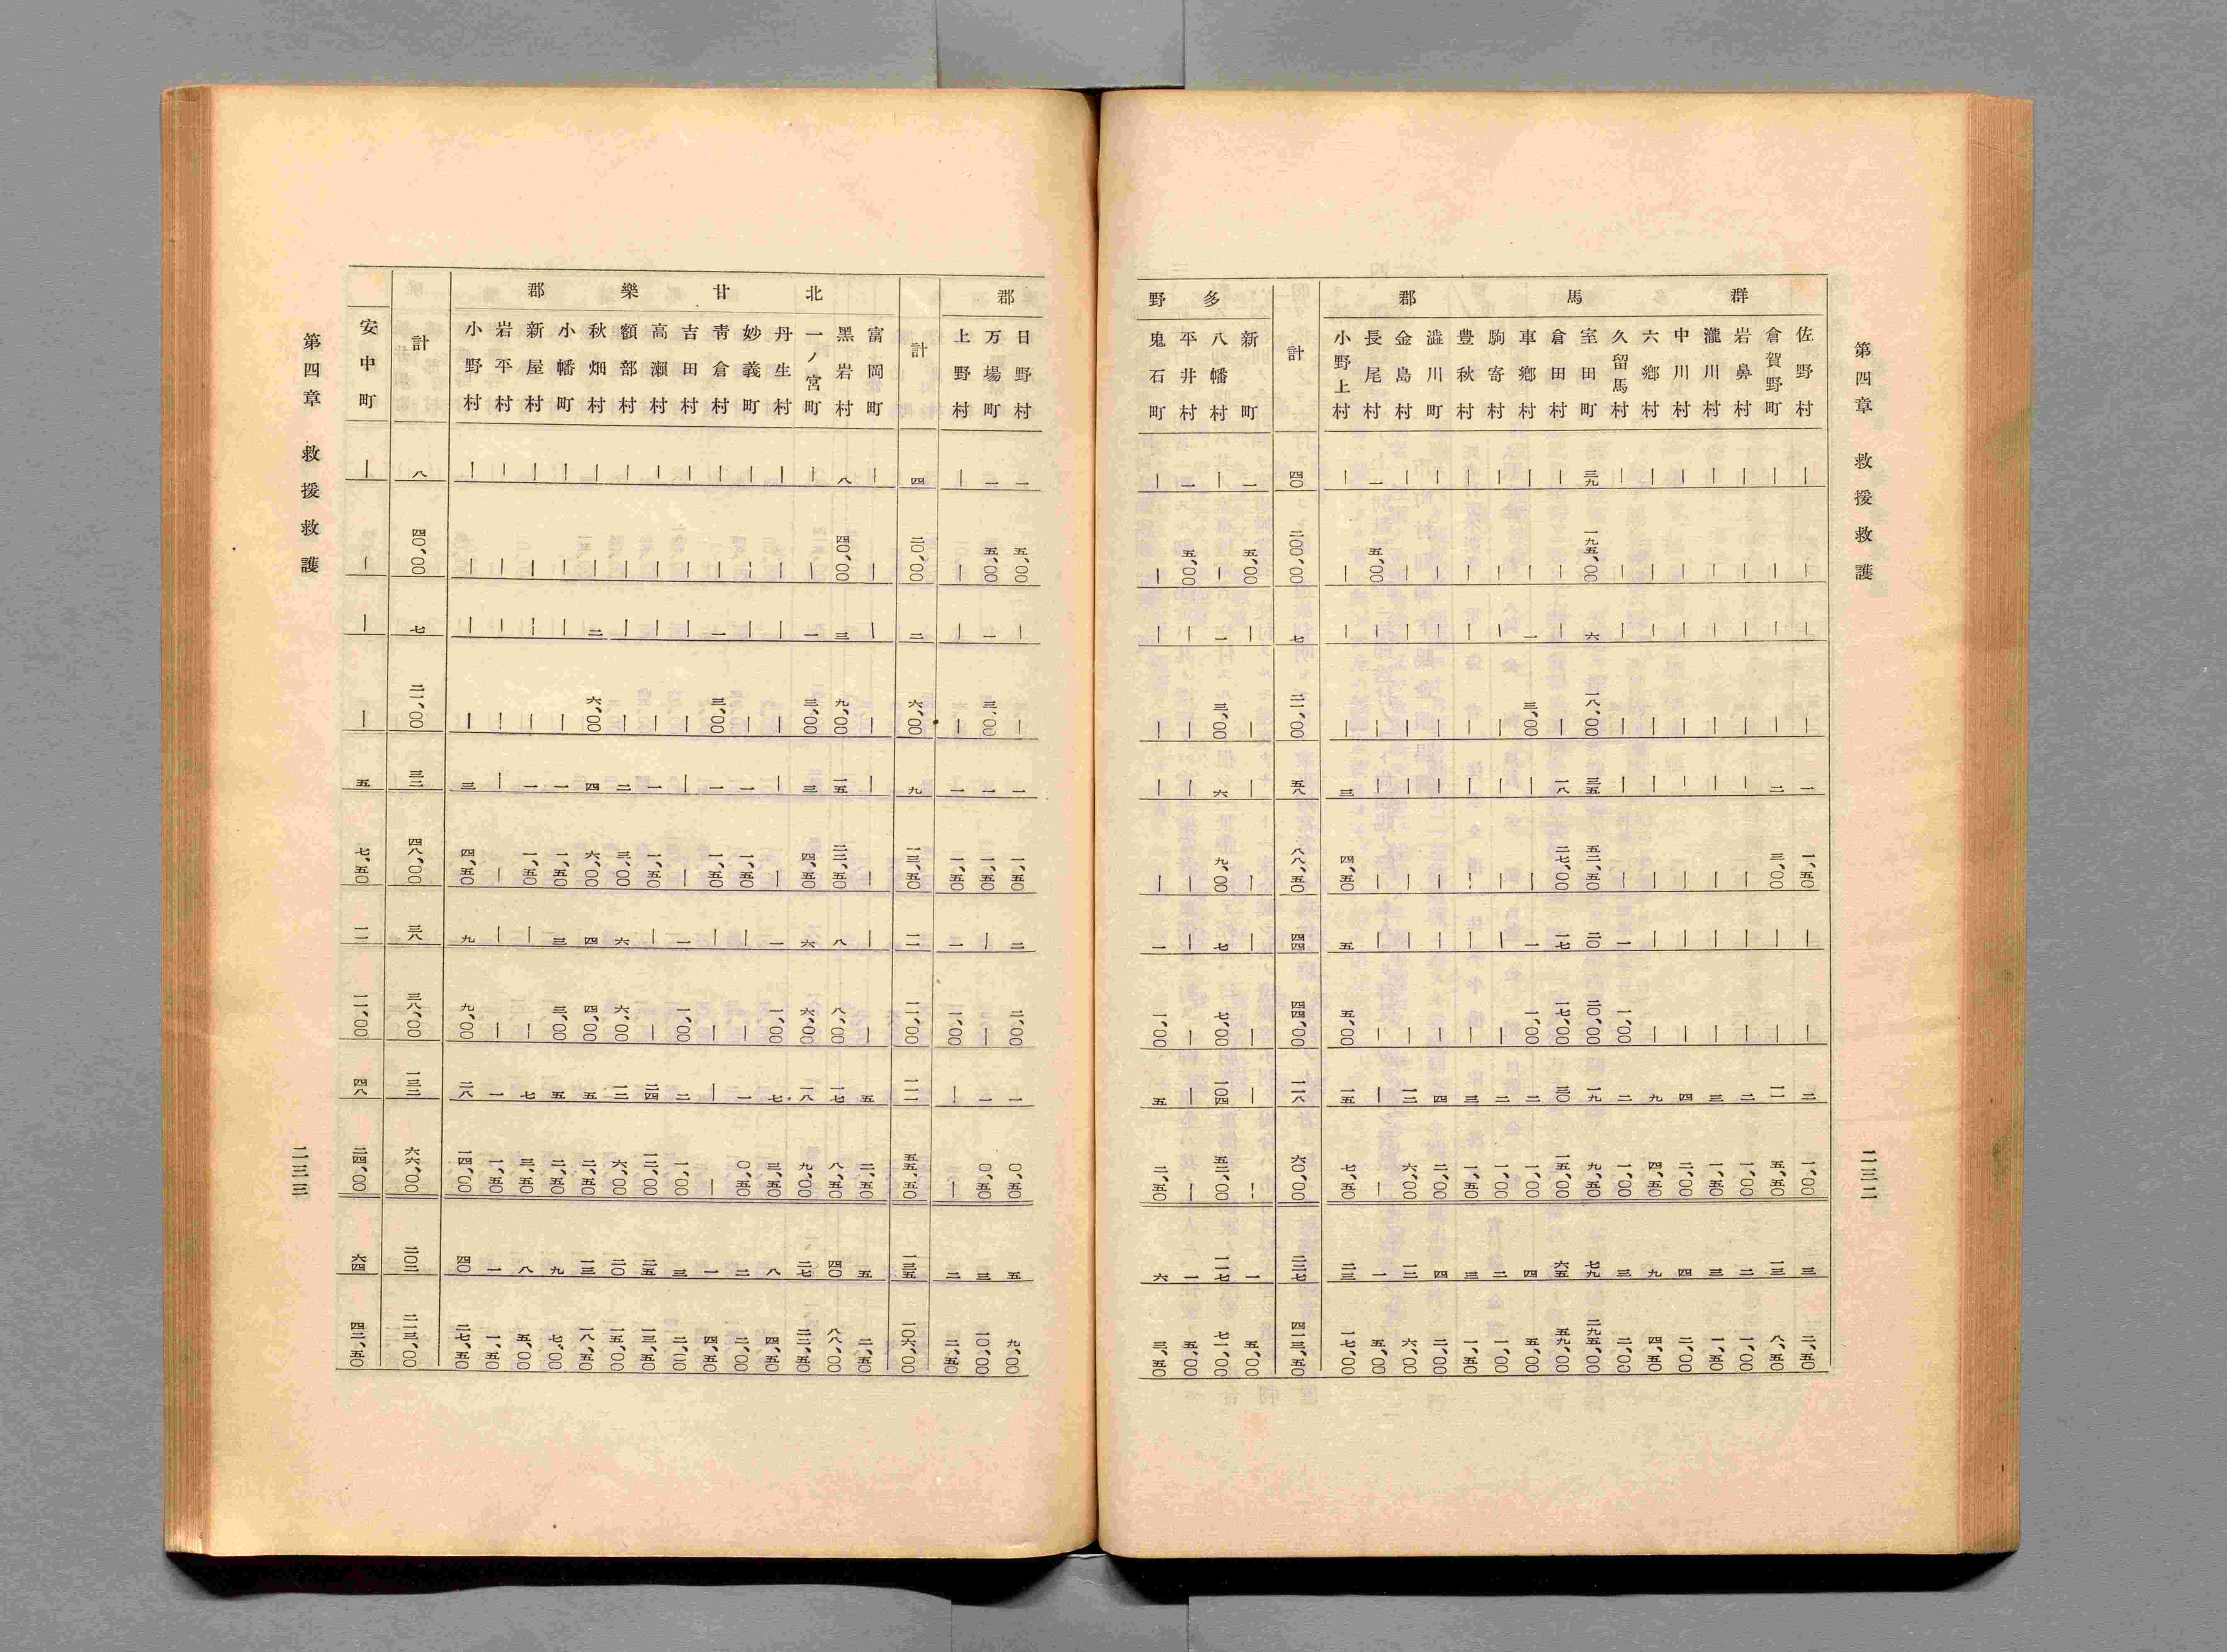 第四章 救援救護
二三二
群馬郡
佐野村 | | | | 一 一、五〇 | | 二 一、〇〇 三 二、五〇
倉賀野町 | | | | 二 三、〇〇 | | 一一 五、五〇 一三 八、五〇
岩鼻村 | | | | | | | | 二 一、〇〇 二 一、〇〇
瀧川村 | | | | | | | | 三 一、五〇 三 一、五〇
中川村 | | | | | | | | 四 二、〇〇 四 二、〇〇
六鄕村 | | | | | | | | 九 四、五〇 九 四、五〇
久留馬村 | | | | | | 一 一、〇〇 二 一、〇〇 三 二、〇〇
室田町 三九 一九五、〇〇 六 一八、〇〇 三五 五二、五〇 二〇 二〇、〇〇 一九 九、五〇 七九 二九五、〇〇
倉田村 | | | | 一八 二七、〇〇 一七 一七、〇〇 三〇 一五、〇〇 六五 五九、〇〇
車鄕村 | | 一 三、〇〇 | | 一 一、〇〇 二 一、〇〇 四 五、〇〇
駒寄村 | | | | | | | | 二 一、〇〇 二 一、〇〇
豊秋村 | | | | | | | | 三 一、五〇 三 一、五〇
澁川町 | | | | | | | | 四 二、〇〇 四 二、〇〇
金島村 | | | | | | | | 一二 六、〇〇 一二 六、〇〇
長尾村 一 五、〇〇 | | | | | | | | 一 五、〇〇
小野上村 | | | | 三 四、五〇 五 五、〇〇 一五 七、五〇 二三 一七、〇〇
計 四〇 二〇〇、〇〇 七 二一、〇〇 五八 八八、五〇 四四 四四、〇〇 一二八 六〇、〇〇 四一三、五〇
多野
新町 一 五、〇〇 | | | | | | | | 一 五、〇〇
八幡村 | | 一 三、〇〇 六 九、〇〇 七 七、〇〇 一〇四 五二、〇〇 一一七 七一、〇〇
平井村 一 五、〇〇 | | | | | | | | 一 五、〇〇
鬼石町 | | | | | | 一 一、〇〇 五 二、五〇 六 三、五〇
郡
日野村 一 五、〇〇 | | 一 一、五〇 二 二、〇〇 一 〇、五〇 五 九、〇〇
万場町 一 五、〇〇 一 三、〇〇 一 一、五〇 | | 一 〇、五〇 三 一〇、〇〇
上野村 | | | | 一 一、五〇 一 一、〇〇 | | 二 二、五〇
計 四 二〇、〇〇 二 六、〇〇 九 一三、五〇 一一 一一、〇〇 一一一 五五、五〇 一三五 一〇六、〇〇
北甘樂郡
富岡町 | | | | | | | | 五 二、五〇 五 二、五〇
黑岩村 八 四〇、〇〇 三 九、〇〇 一五 二二、五〇 八 八、〇〇 一七 八、五〇 四〇 八八、〇〇
一ノ宮町 | | 一 三、〇〇 三 四、五〇 六 六、〇〇 一八 九、〇〇 二七 二二、五〇
丹生村 | | | | | | 一 一、〇〇 七 三、五〇 八 四、五〇
妙義町 | | | | 一 一、五〇 | | 一 〇、五〇 二 二、〇〇
靑倉村 | | 一 三、〇〇 一 一、五〇 | | | | 一 四、五〇
吉田村 | | | | | | 一 一、〇〇 二 一、〇〇 三 二、〇〇
高瀨村 | | | | 一 一、五〇 | | 二四 一二、〇〇 二五 一三、五〇
額部村 | | | | 二 三、〇〇 六 六、〇〇 一二 六、〇〇 二〇 一五、〇〇
秋畑村 | | 二 六、〇〇 四 六、〇〇 四 四、〇〇 五 二、五〇 一三 一八、五〇
小幡町 | | | | 一 一、五〇 三 三、〇〇 五 二、五〇 九 七、〇〇
新屋村 | | | | 一 一、五〇 | | 七 三、五〇 八 五、〇〇
岩平村 | | | | | | | | 一 一、五〇 一 一、五〇
小野村 | | | | 三 四、五〇 九 九、〇〇 二八 一四、〇〇 四〇 二七、五〇
計 八 四〇、〇〇 七 二一、〇〇 三二 四八、〇〇 三八 三八、〇〇 一三二 六六、〇〇 二〇二 二一三、〇〇
安中町 | | | | 五 七、五〇 一一 一一、〇〇 四八 二四、〇〇 六四 四二、五〇
第四章 救援救護
二三三